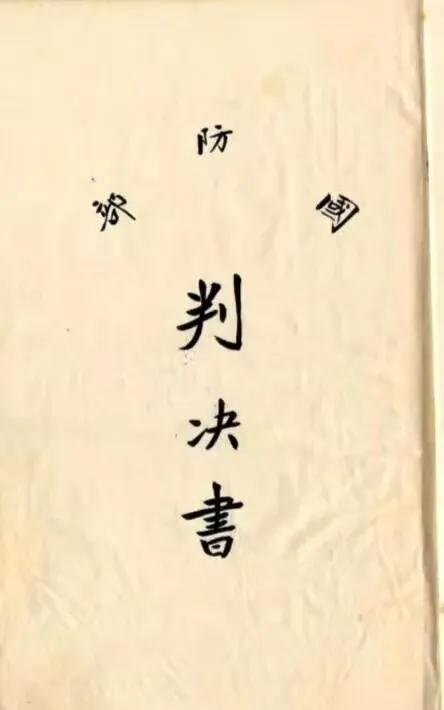 國防部
判决書